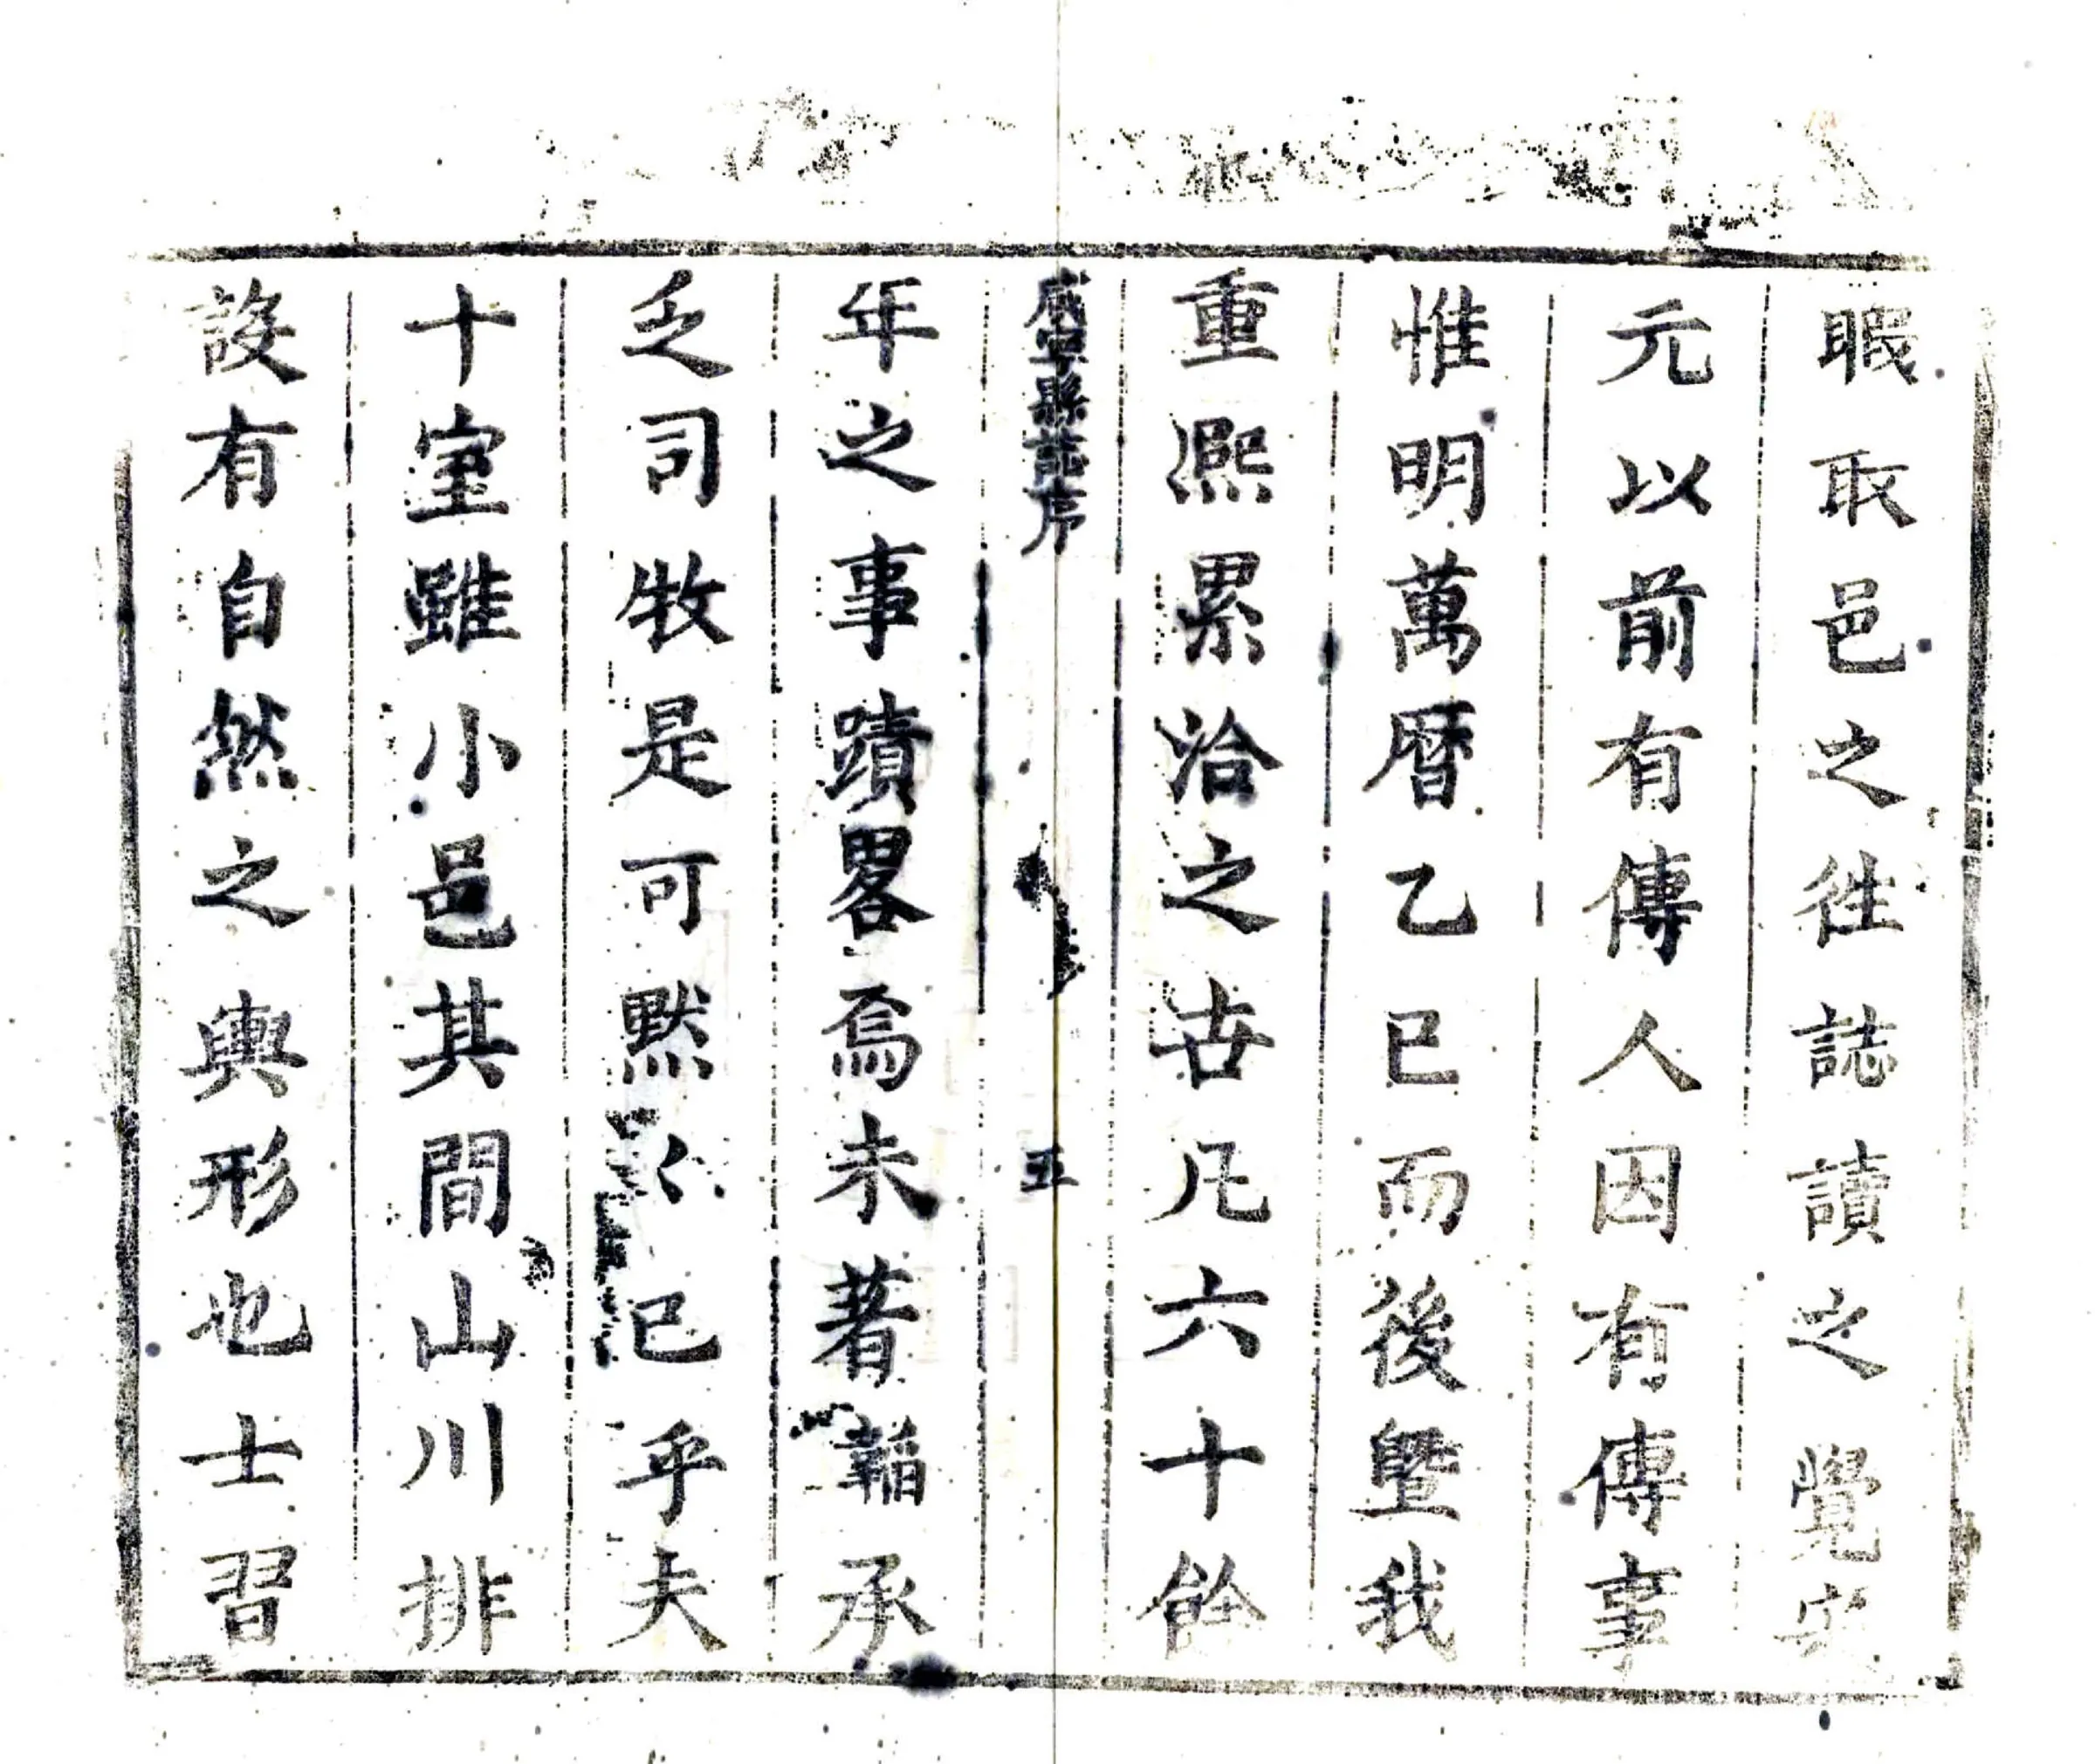 暇取邑之徃誌讀之覺宋
元以前有傳人因有傳事
惟明萬暦乙巳而後曁我
重熈累洽之世凡六十餘
咸寧縣誌序 五
年之事蹟畧焉未著韜承
乏司牧是可黙〱已乎夫
十室雖小邑其間山川排
設有自然之輿形也士習